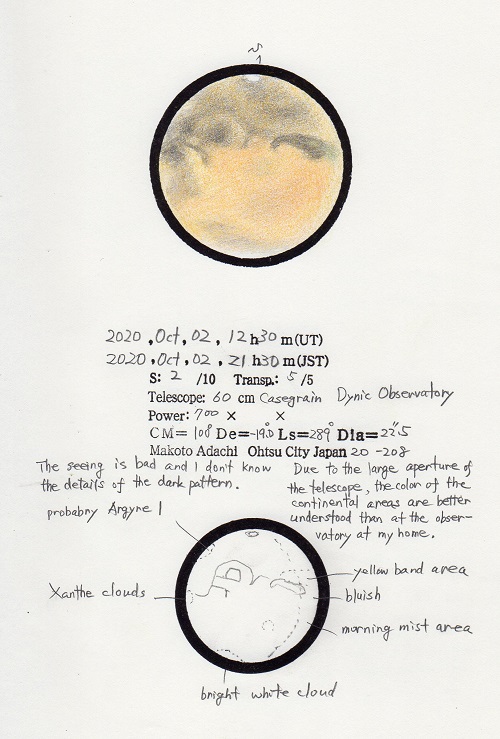 S
2020, Oct, 02, 12h30m(UT)
2020, Oct, 02, 21h30m(JST)
S: 2 /10 Transp.: 5 /5
Telescope: 60 cm Casegrain Dynic Observatory
Power: 700 × ×
CM= 108° De=-19.0° Ls=289° Dia=22".5
Makoto Adachi Ohtsu City Japan 20-208
The seeing is bad and I don't know
the details of the dark pattern.
Due to the large aperture of
the telescope, the color of the
continental areas are better
understood than at the obser-
vatory at my home.
probabry Argyre I
yellow band area
Xanthe clouds
bluish
morning mist area
bright white cloud